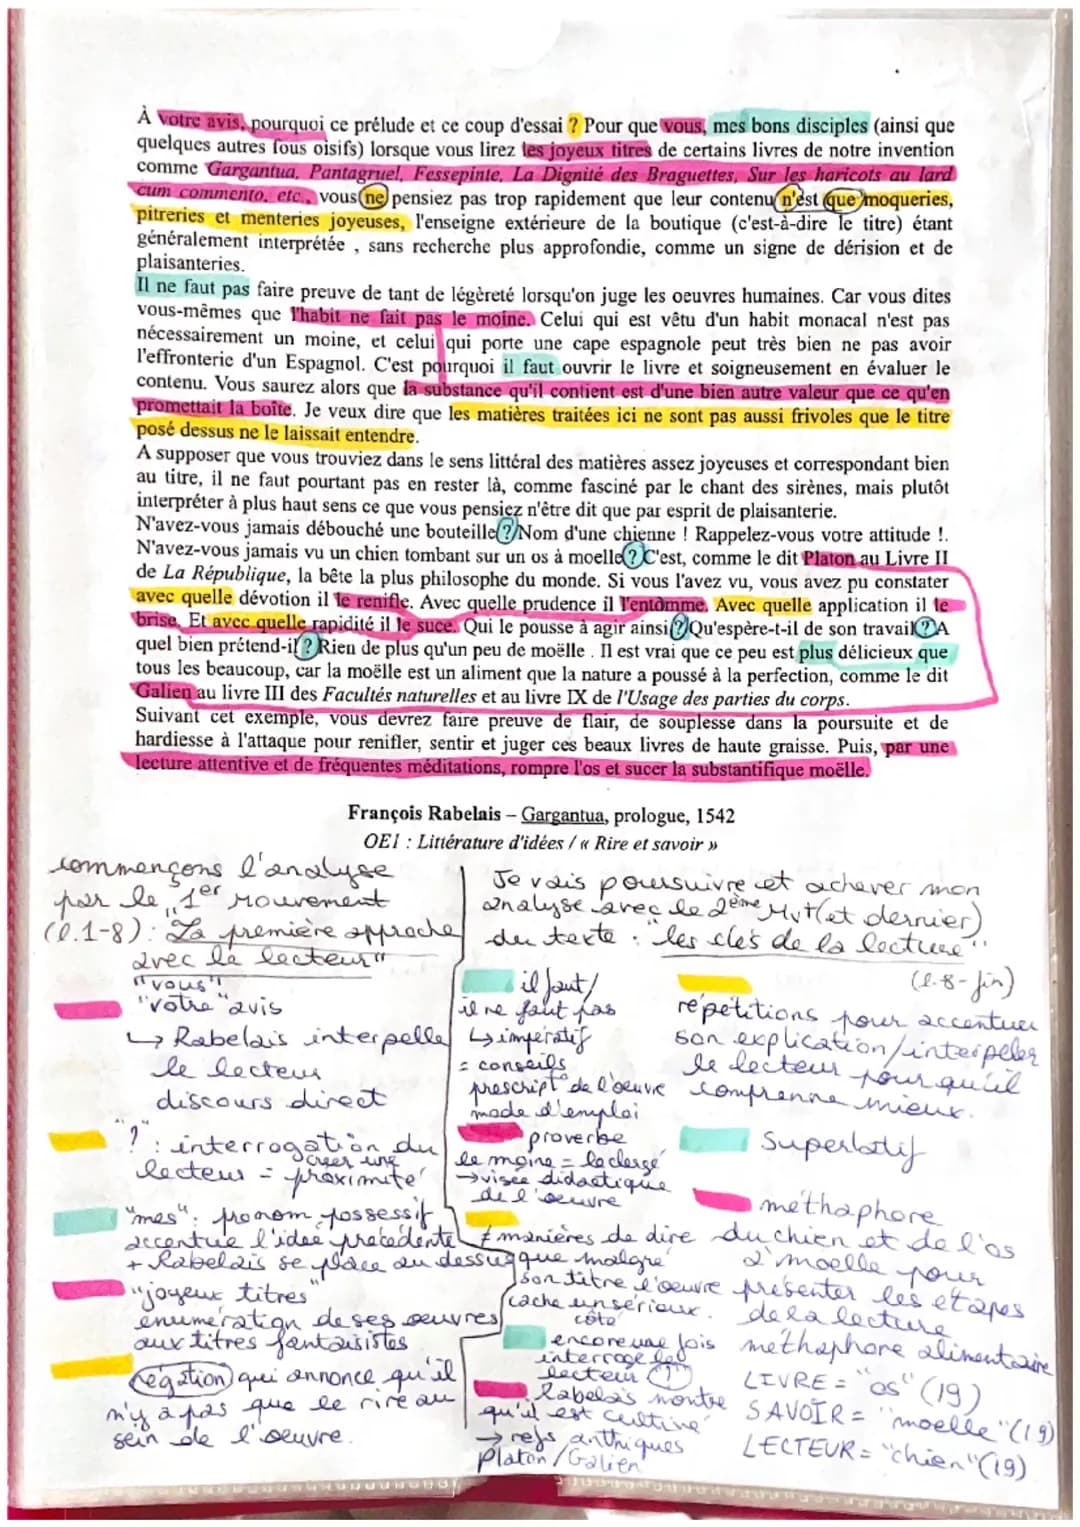 À votre avis, pourquoi ce prélude et ce coup d'essai ? Pour que vous, mes bons disciples (ainsi que
quelques autres fous oisifs) lorsque vous lirez les joyeux titres de certains livres de notre invention
comme Gargantua, Pantagruel, Fessepinte, La Dignité des Braguettes, Sur les haricots au lard
cum commento, etc., vous ne pensiez pas trop rapidement que leur contenu n'est que moqueries,
pitreries et menteries joyeuses, l'enseigne extérieure de la boutique (c'est-à-dire le titre) étant
généralement interprétée , sans recherche plus approfondie, comme un signe de dérision et de
plaisanteries.
Il ne faut pas faire preuve de tant de légèreté lorsqu'on juge les oeuvres humaines. Car vous dites
vous-mêmes que l'habit ne fait pas le moine. Celui qui est vêtu d'un habit monacal n'est pas
nécessairement un moine, et celui qui porte une cape espagnole peut très bien ne pas avoir
l'effronterie d'un Espagnol. C'est pourquoi il faut ouvrir le livre et soigneusement en évaluer le
contenu. Vous saurez alors que la substance qu'il contient est d'une bien autre valeur que ce qu'en
promettait la boîte. Je veux dire que les matières traitées ici ne sont pas aussi frivoles que le titre
posé dessus ne le laissait entendre.
A supposer que vous trouviez dans le sens littéral des matières assez joyeuses et correspondant bien
au titre, il ne faut pourtant pas en rester là, comme fasciné par le chant des sirènes, mais plutôt
interpréter à plus haut sens ce que vous pensiez n'être dit que par esprit de plaisanterie.
N'avez-vous jamais débouché une bouteille ? Nom d'une chienne ! Rappelez-vous votre attitude !.
N'avez-vous jamais vu un chien tombant sur un os à moelle ? C'est, comme le dit Platon au Livre II
de La République, la bête la plus philosophe du monde. Si vous l'avez vu, vous avez pu constater
avec quelle dévotion il le renifle. Avec quelle prudence il l'entâmme. Avec quelle application il le
brise. Et avec quelle rapidité il le suce. Qui le pousse à agir ainsi ? Qu'espère-t-il de son travail ? A
quel bien prétend-il ? Rien de plus qu'un peu de moëlle . Il est vrai que ce peu est plus délicieux que
tous les beaucoup, car la moëlle est un aliment que la nature a poussé à la perfection, comme le dit
Galien au livre III des Facultés naturelles et au livre IX de l'Usage des parties du corps.
Suivant cet exemple, vous devrez faire preuve de flair, de souplesse dans la poursuite et de
hardiesse à l'attaque pour renifler, sentir et juger ces beaux livres de haute graisse. Puis, par une
lecture attentive et de fréquentes méditations, rompre l'os et sucer la substantifique moëlle.
François Rabelais – Gargantua, prologue, 1542
OE1 : Littérature d'idées / « Rire et savoir »
commençons l'analyse
par le 1er Mouvement
(l.1-8) : "La première approche
avec le lecteur"
"vous"
"votre" avis
↳ Rabelais interpelle
le lecteur
discours direct
"?" : interrogation du
lecteur = créer une
proximité
"mes" : pronom possessif
accentue l'idée précédente
+ Rabelais se place au dessus
"joyeux titres"
énumération de ses œuvres
aux titres fantaisistes
négation qui annonce qu'il
n'y a pas que le rire au
sein de l'œuvre.
Je vais poursuivre et achever mon
analyse avec le 2ème Mvt (et dernier)
du texte : "les clés de la lecture"
(l.8-fin)
il faut /
il ne faut pas
↳ impératif
= conseils
prescript° de l'œuvre
mode d'emploi
proverbe
le moine = le clergé
→ visée didactique
de l'œuvre
≠ manières de dire
que malgré
son titre l'œuvre
cache un sérieux
côté
encore une fois
interroge le
lecteur (?)
Rabelais montre
qu'il est cultivé
→ refs anthiques
Platon / Galien
répétitions pour accentuer
son explication / interpeler
le lecteur pour qu'il
comprenne mieux.
Superlatif
méthaphore
du chien et de l'os
à moelle pour
présenter les étapes
de la lecture
méthaphore alimentaire
LIVRE = "os" (19)
SAVOIR = "moelle" (19)
LECTEUR = "chien" (19)